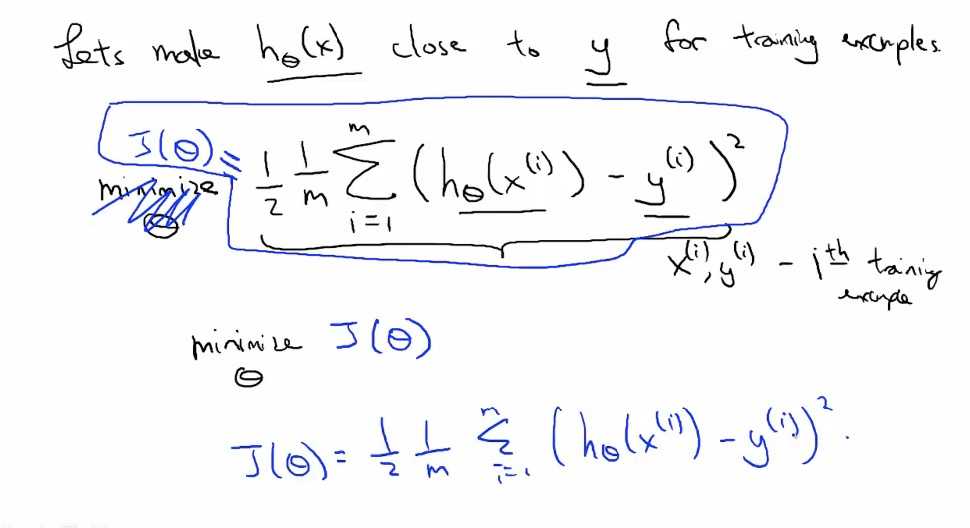 Lets make hθ(x) close to y for training examples.
J(θ) = 1/2 1/m Σ_{i=1}^{m} (hθ(x^(i)) - y^(i))^2
minimize
θ
x^(i), y^(i) - ith training
example
minimize J(θ)
θ
J(θ) = 1/2 1/m Σ_{i=1}^{n} (hθ(x^(i)) - y^(i))^2.